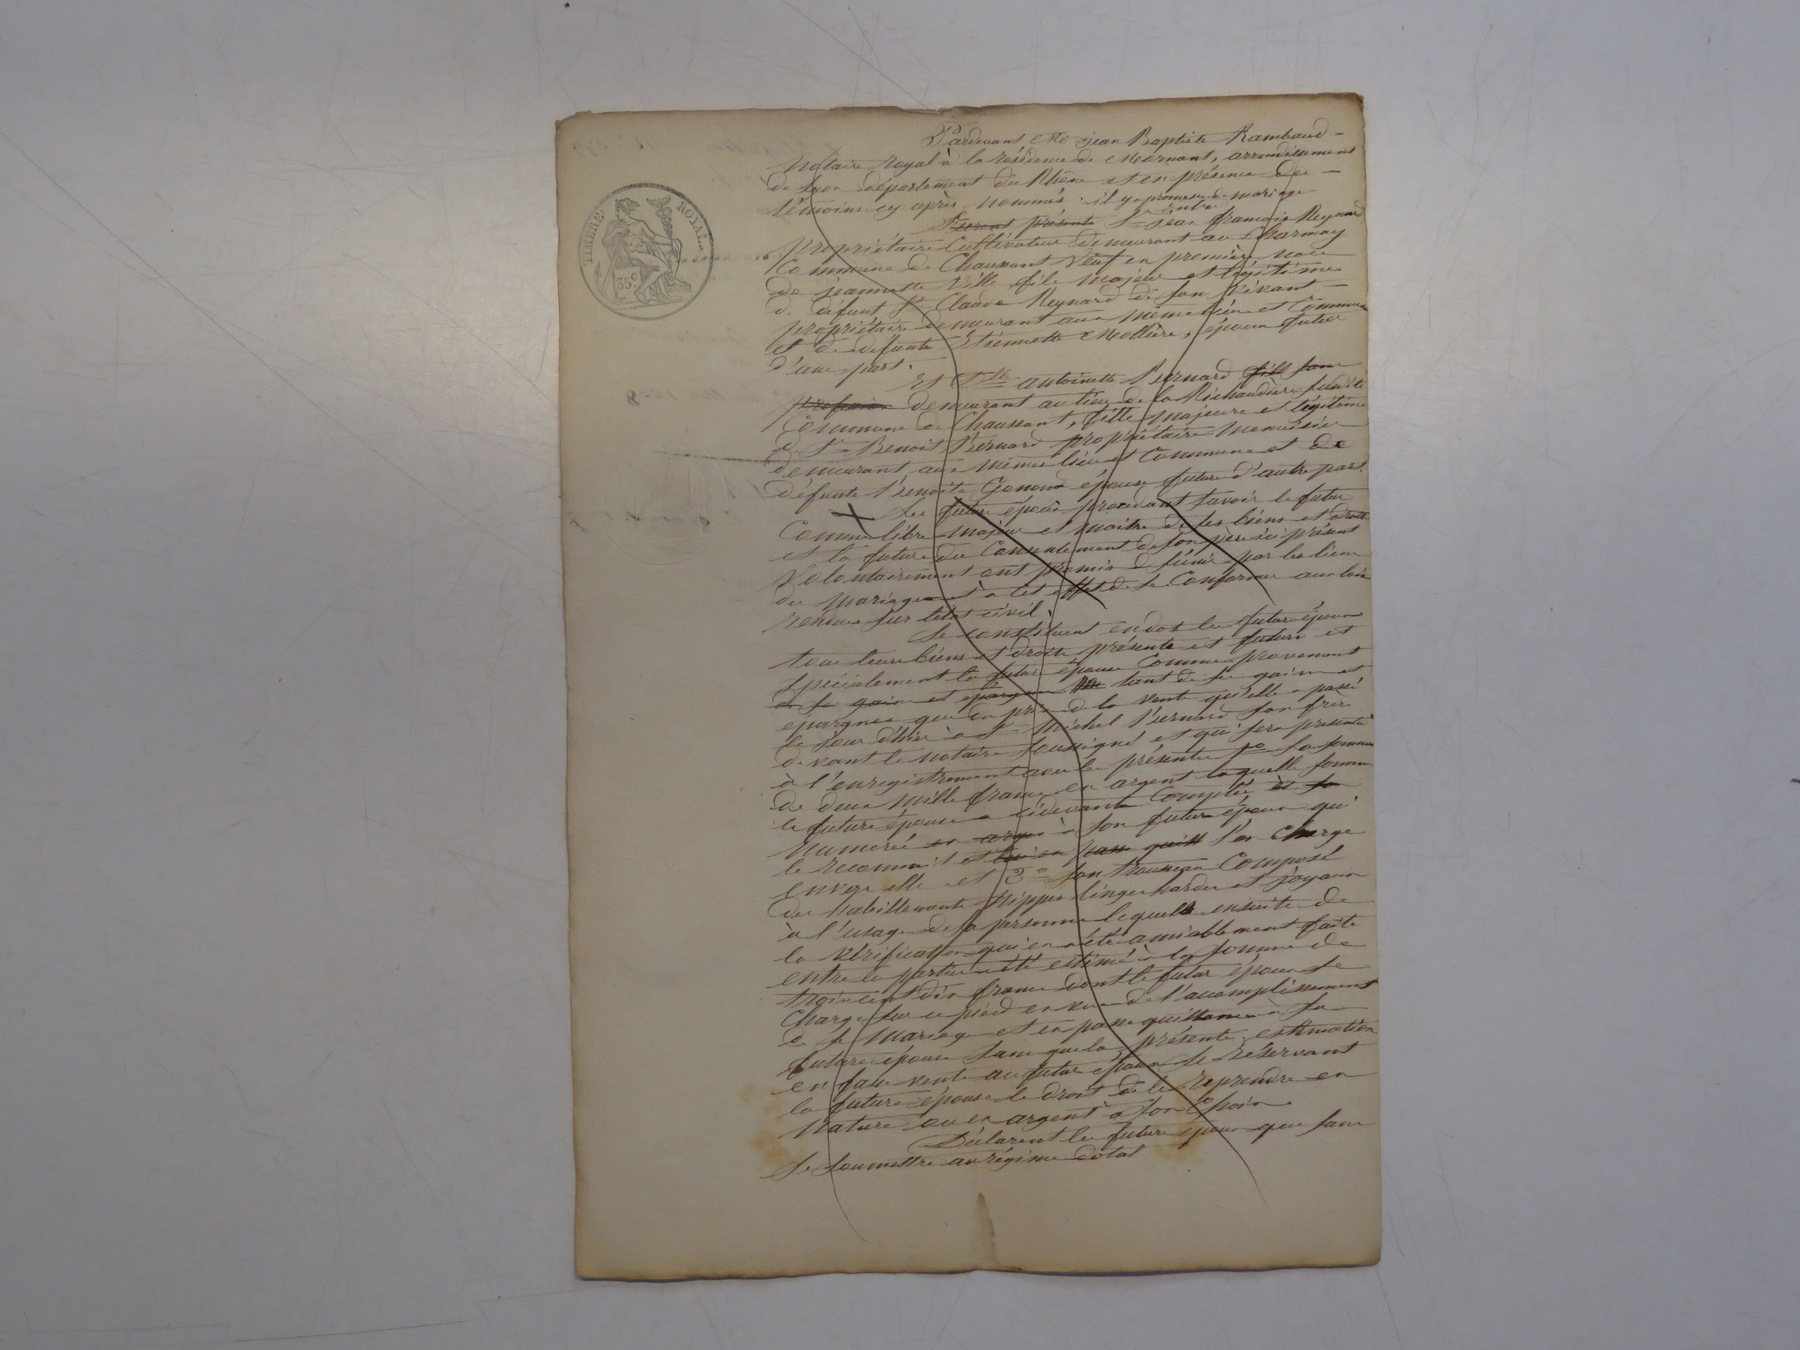 TIMBRE ROYAL
35 c
Pardevant Me Jean Baptiste Rambaud
Notaire Royal à la résidence de Mornant, arrondissement
de Lyon département du Rhône et en présence des
témoins cy après nommés. il y a promesse de mariage
entre
Seront présents Sr Jean françois Reynard
propriétaire Cultivateur demeurant au Charmay
Commune de Chaussant Veuf en première noce
de jeannette Ville fils majeur et légitime
de défunt Sr Claude Reynard de son vivant
propriétaire demeurant aux mêmes lieu et Commune
et de defunte Etiennette Mollière, époux futur
d'une part.
Et Dlle antoinette Bernard fille sans
profession demeurant au lieu de la Richaudière susdite
Commune de Chaussant, fille majeure et légitime
de Sr Benoit Bernard propriétaire Menuisier
demeurant aux mêmes lieu et Commune et de
défunte Benoite Genoud épouse future d'autre part.
Les futurs époux procédant savoir le futur
Comme libre majeur et maitre de ses biens et droits
et la future du Consentement de son père ici présent
Volontairement ont promis de s'unir par les liens
du mariage et à cet effet de se Conformer aux lois
rendues sur l'état civil.
Se constituent en dot les futurs époux
tous leurs biens et droits présents et futurs et
spécialement la future épouse Comme provenant
de ses gains et épargnes tant de ses gains et
épargnes que du prix de la vente qu'elle a passé
le jour d'hier à Sr Michel Bernard son frère
devant le notaire soussigné et qui sera présenté
à l'enregistrement avec les présentes 1o la somme
de deux mille francs en argent laquelle somme
la future épouse a cidevant Comptée et
Numérée à son futur époux qui
le reconnait et l'en Charge
envers elle et 2o son trousseau Composé
des habillements Nippes linges hardes et joyaux
à l'usage de sa personne lequel ensuite de
la Vérification qui en a été amiablement faite
entre les parties a été estimé à la somme de
trois cent dix francs dont le futur époux se
Charge sur ce pied en vue de l'accomplissement
de ce Mariage et en passe quittance à sa
future épouse sans que la présente estimation
en fasse vente au futur époux se Réservant
la future épouse le droit de le reprendre en
Nature ou en argent à son Choix.
Déclarent les futurs époux que sans
se soumettre au régime dotal